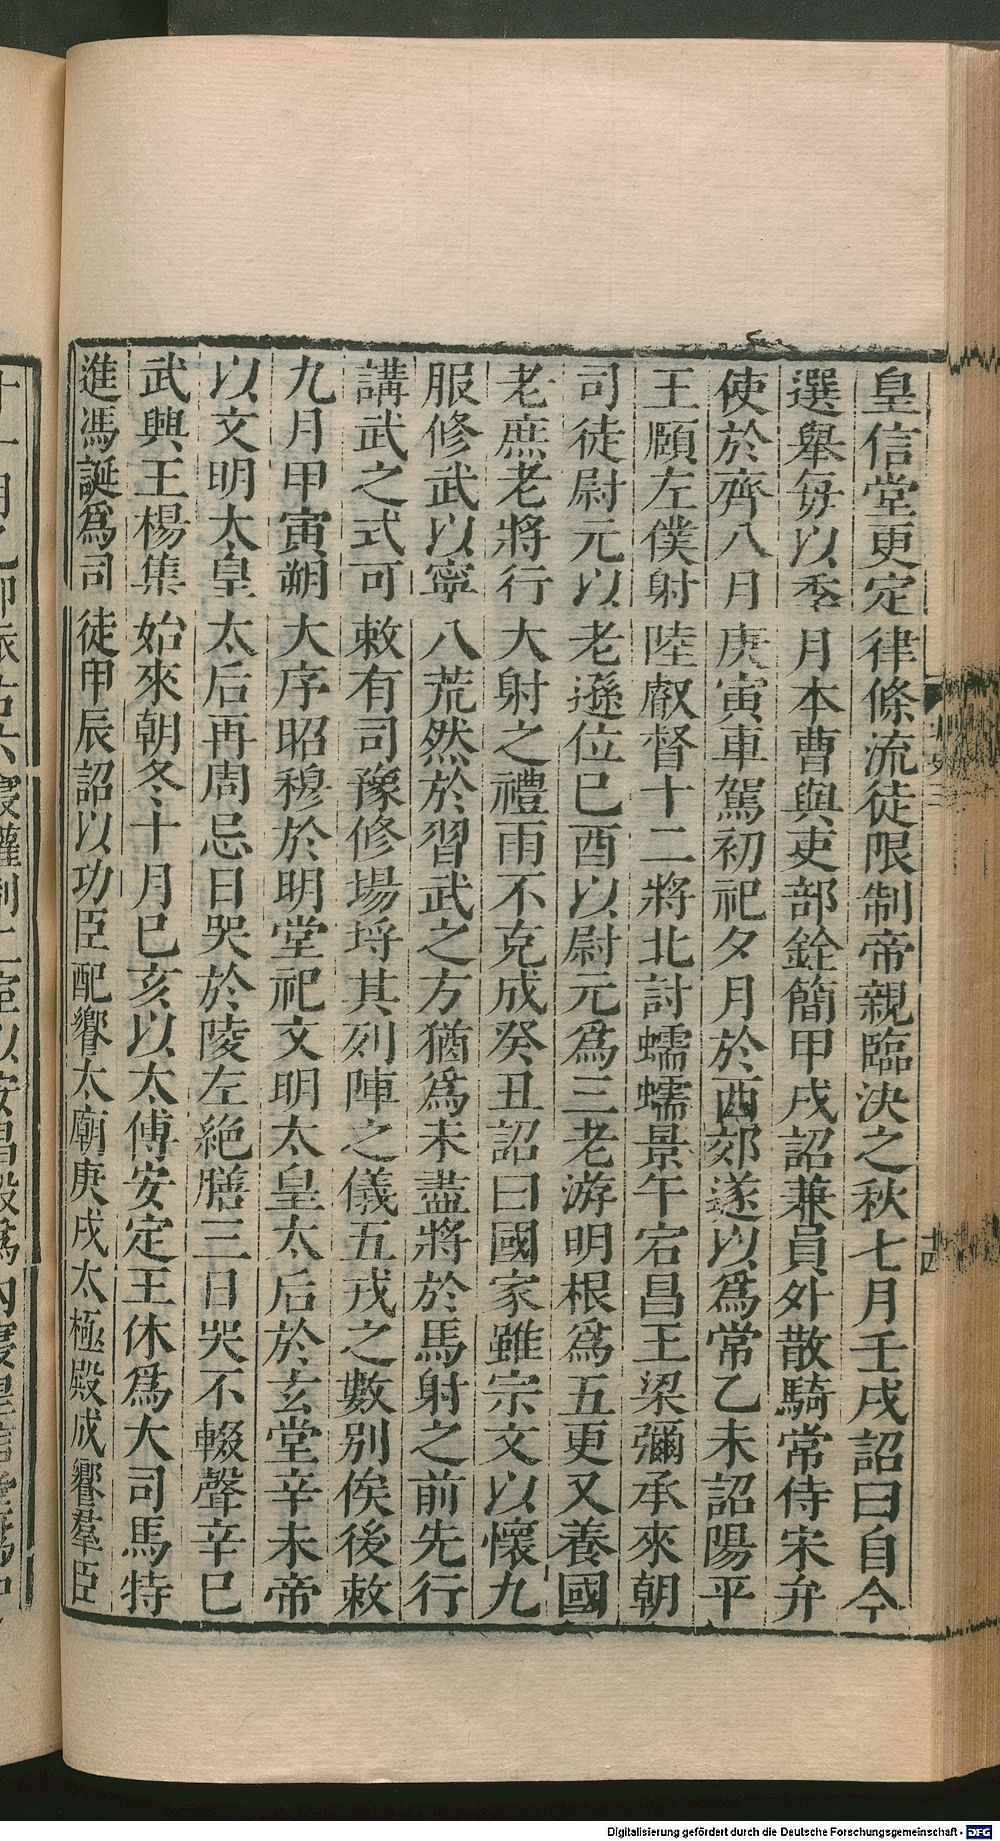 皇信堂更定律條流徒限制帝親臨決之秋七月壬戌詔曰自今
選舉每以季月本曹與吏部銓簡甲戌詔兼員外散騎常侍宋弁
使於齊八月庚寅車駕初祀夕月於西郊遂以爲常乙未詔陽平
王頤左僕射陸叡督十二將北討蠕蠕景午宕昌王梁彌承來朝
司徒尉元以老遜位已酉以尉元爲三老游明根爲五更又養國
老庶老將行大射之禮雨不克成癸丑詔曰國家雖宗文以懷九
服修武以寧八荒然於習武之方猶爲未盡將於馬射之前先行
講武之式可敕有司豫修場埒其列陣之儀五戎之數別俟後敕
九月甲寅朔大序昭穆於明堂祀文明太皇太后於玄堂辛未帝
以文明太皇太后再周忌日哭於陵左絶膳三日哭不輟聲辛巳
武興王楊集始來朝冬十月巳亥以太傅安定王休爲大司馬特
進馮誕爲司徒甲辰詔以功臣配饗太廟庚戌太極殿成饗羣臣
十四
Digitalisierung gefördert durch die Deutsche Forschungsgemeinschaft - DFG